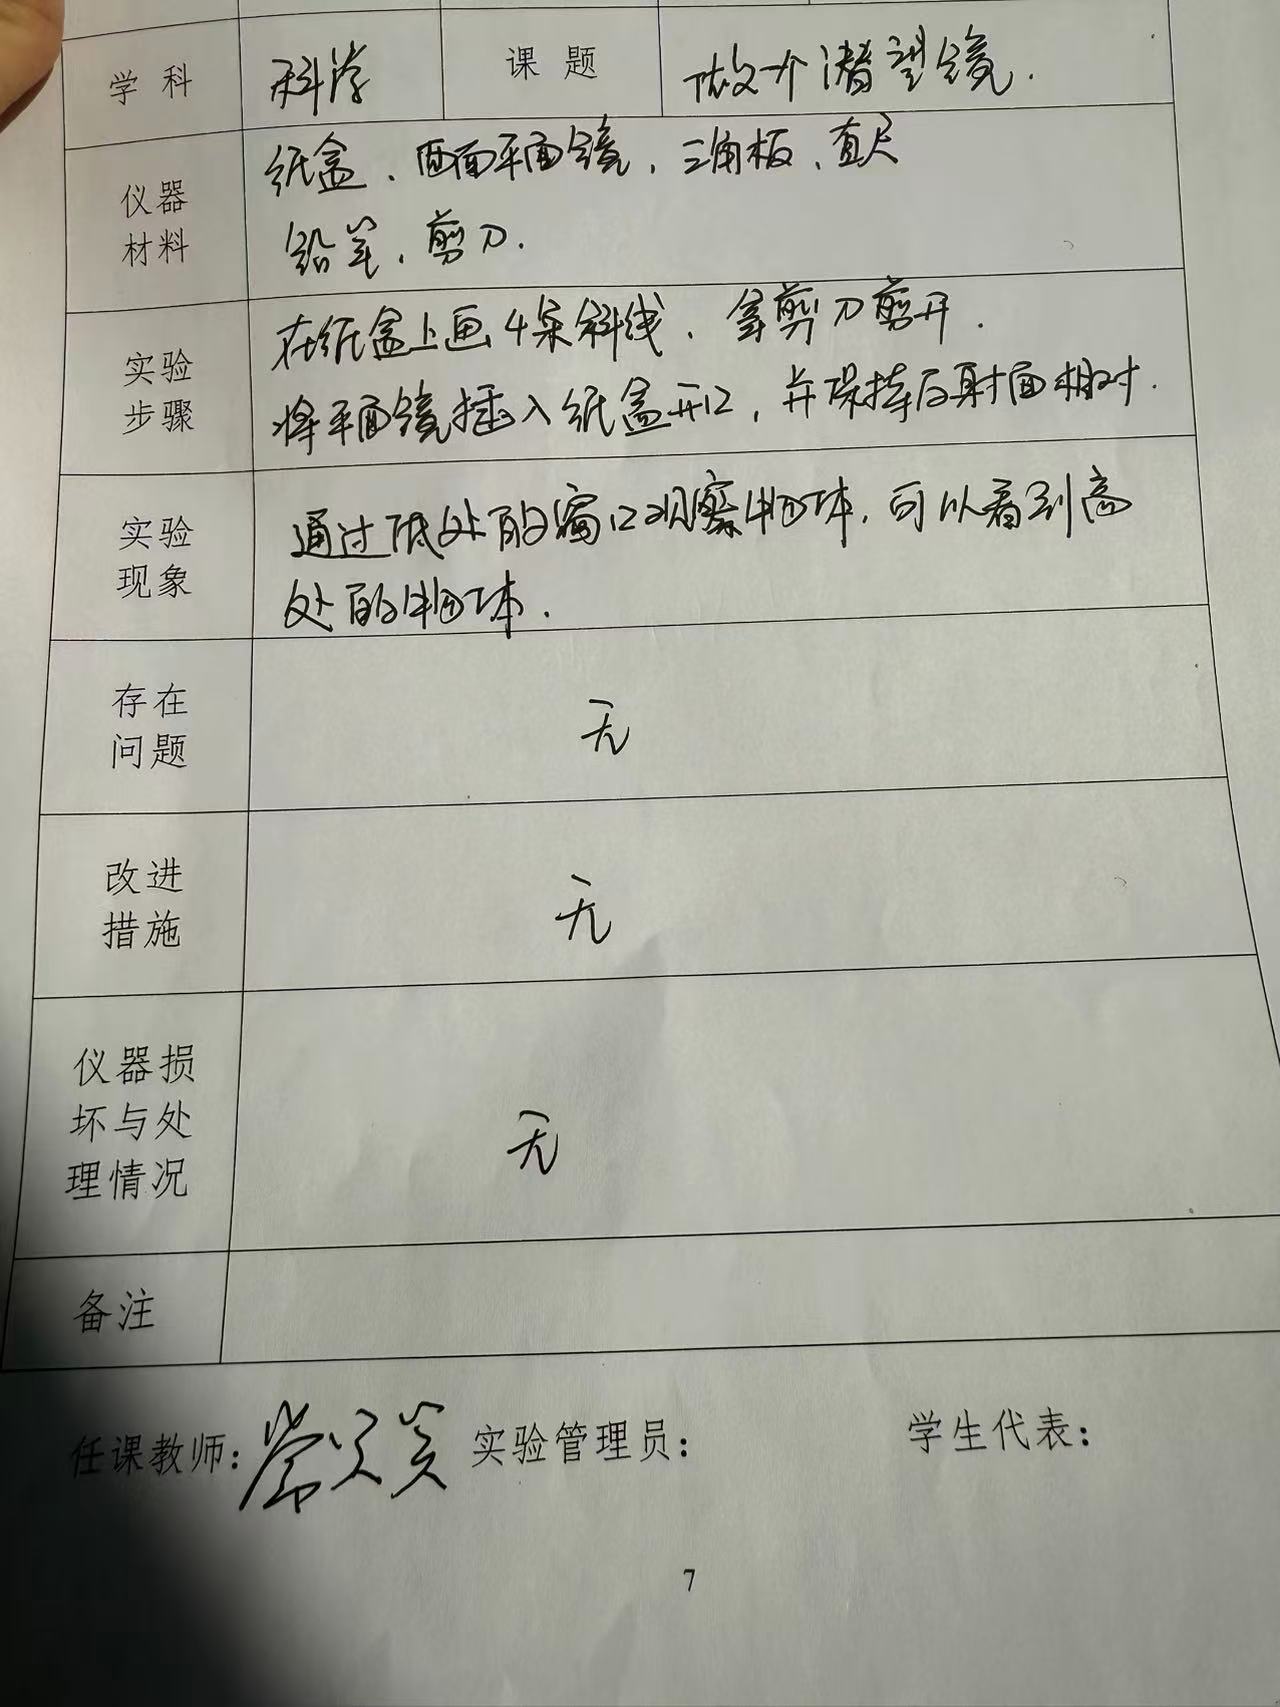 学科 科学 课题 做一个潜望镜.
仪器材料 纸盒、两面平面镜,三角板、直尺
铅笔、剪刀.
实验步骤 在纸盒上画4条斜线、拿剪刀剪开.
将平面镜插入纸盒开口,并保持反射面相对.
实验现象 通过低处的窗口观察物体,可以看到高
处的物体.
存在问题 无
改进措施 无
仪器损坏与处理情况 无
备注
任课教师: 实验管理员: 学生代表:
7